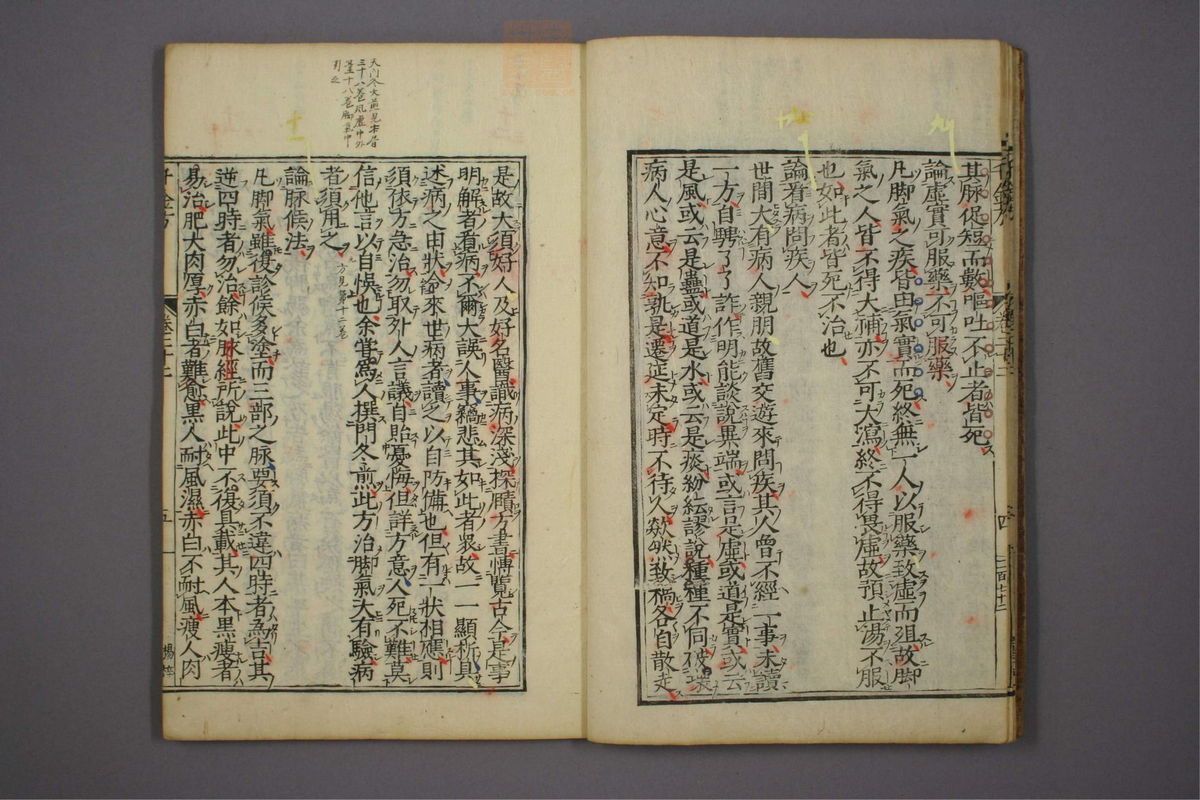 其脉促短而數嘔吐不止者皆死
論虛實可服藥不可服藥
凡脚氣之疾皆由氣實而死終無一人以服藥致虛而殂故脚
氣之人皆不得大補亦不可大瀉終不得畏虛故預止湯不服
也如此者皆死不治也
論看病問疾人
世間大有病人親朋故舊交遊來問疾其人曾不經一事未讀
一方自騁了了詐作明能談說異端或言是虛或道是實或云
是風或云是蠱或道是水或云是痰紛紜謬說種種不同破壞
病人心意不知孰是遷延未定時不待人欻然致禍各自散走
四
天門冬大煎見本書
三十八卷風虛中外
臺十八卷脚氣中
引之
是故大須好人及好名醫識病深淺探賾方書博覽古今是事
明解者看病不爾大誤人事竊悲其如此者衆故一一顯析具
述病之由狀令來世病者讀之以自防備也但有一狀相應則
須依方急治勿取外人言議自貽憂悔但詳方意人死不難莫
信他言以自悞也余嘗爲人撰門冬煎此方治脚氣大有驗病
者須用之 方見第十二卷
論脉候法
凡脚氣雖復診候多塗而三部之脉要須不違四時者爲吉其
逆四時者勿治餘如脉經所說此中不復具載其人本黑瘦者
易治肥大肉厚赤白者難愈黑人耐風濕赤白不耐風瘦人肉
五